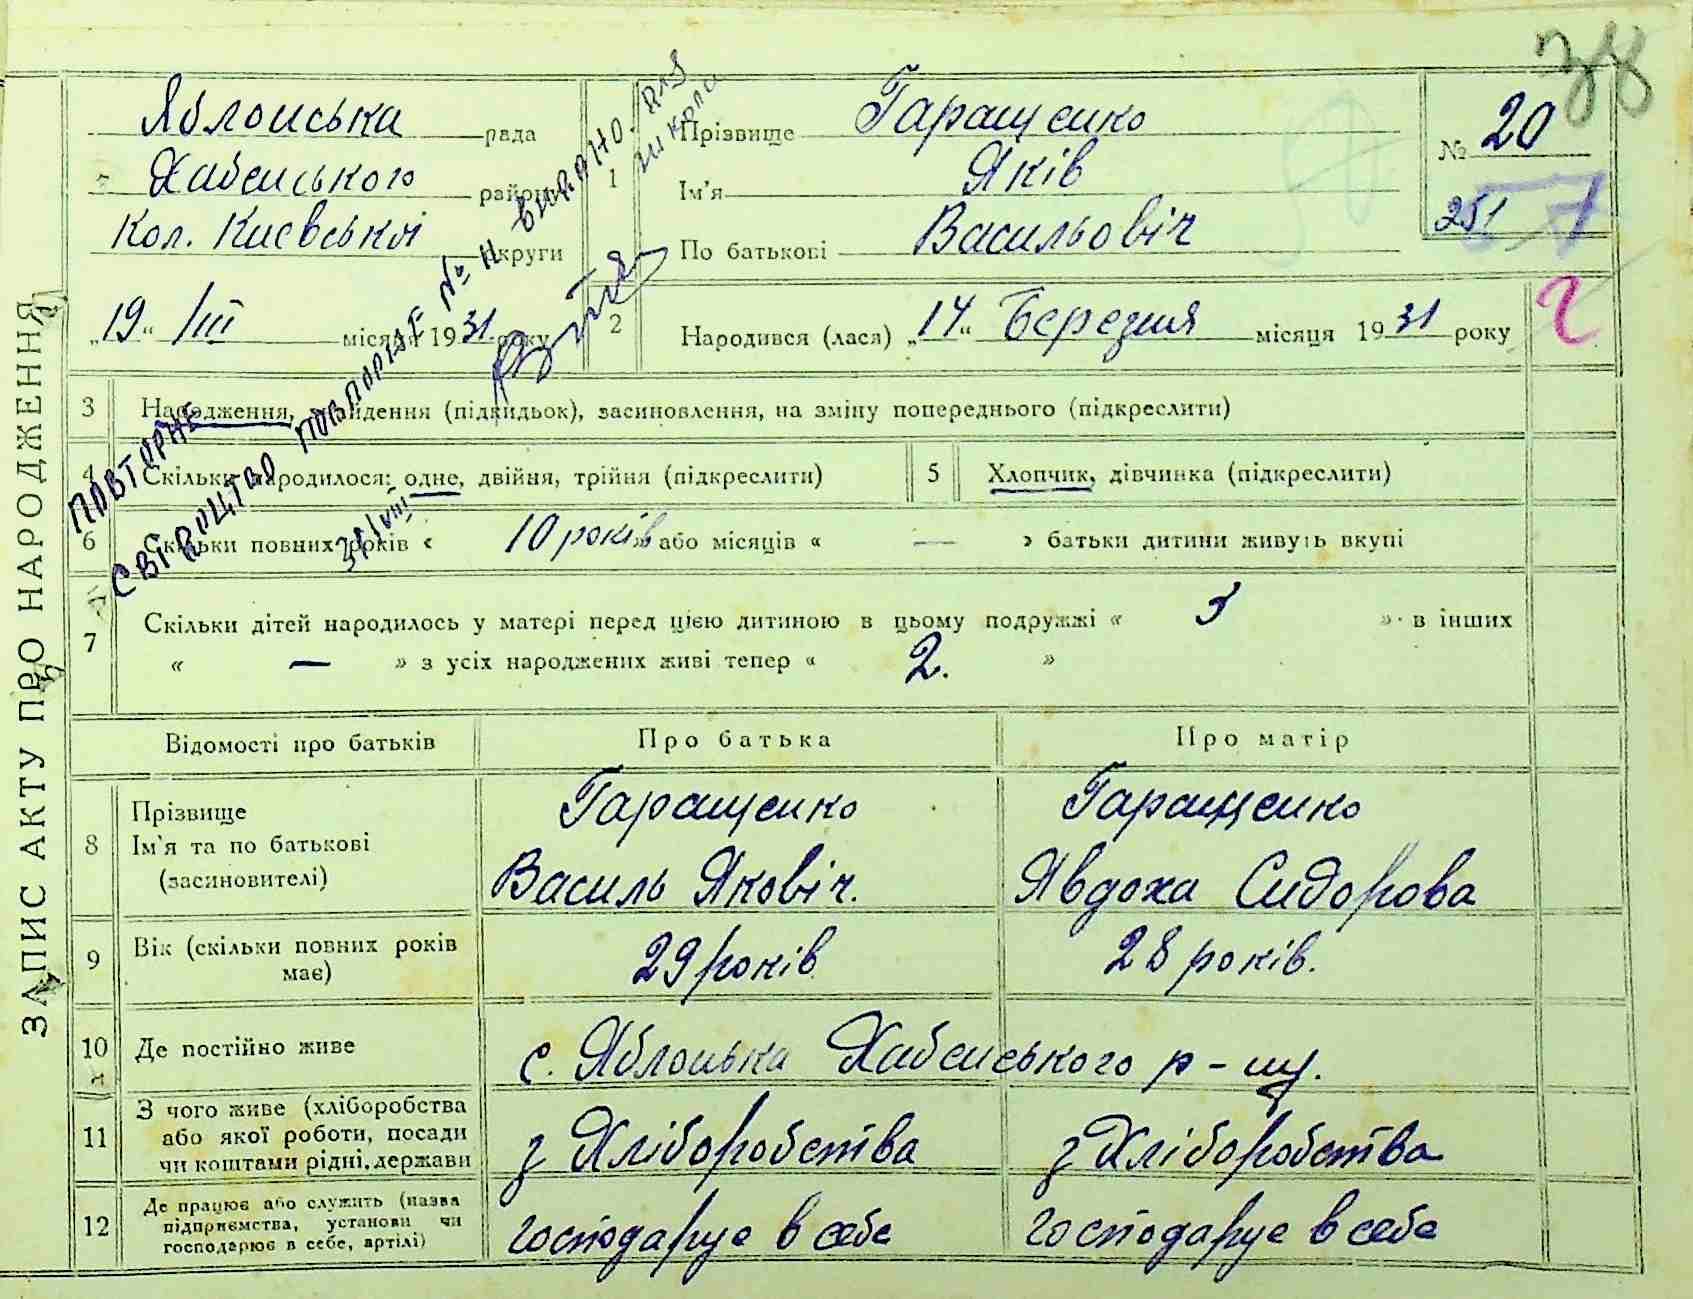 38
ЗАПИС АКТУ ПРО НАРОДЖЕННЯ
Яблонська рада
Хабенського району
Кол. Києвської округи
„19“ /III місяця 1931 року
1
Прізвище Гаращенко
Ім'я Яків
По батькові Васильовіч
№ 20
251
2
Народився (лася) „14“ Березня місяця 1931 року
ПОВТОРНЕ
СВІДОЦТВО ПОВТОРНЕ № 11 ВИДАНО. ДЛЯ
школи
31/VIII
3 Народження, знайдення (підкидьок), засиновлення, на зміну попереднього (підкреслити)
4 Скільки народилося: одне, двійня, трійня (підкреслити)
5 Хлопчик, дівчинка (підкреслити)
6 Скільки повних років « 10 років » або місяців « — » батьки дитини живуть вкупі
7 Скільки дітей народилось у матері перед цією дитиною в цьому подружжі « 3 » в інших
« — » з усіх народжених живі тепер « 2. »
Відомості про батьків Про батька Про матір
8 Прізвище Ім'я та по батькові (засиновителі)
Гаращенко
Василь Яковіч.
Гаращенко
Явдоха Сидорова
9 Вік (скільки повних років має)
29 років
28 років.
10 Де постійно живе
с. Яблонька Хабенського р-ну.
11 З чого живе (хліборобства або якої роботи, посади чи коштами рідні, держави
з Хліборобства
з Хліборобства
12 Де працює або служить (назва підприємства, установи чи господарює в себе, артілі)
господарує в себе
господарує в себе